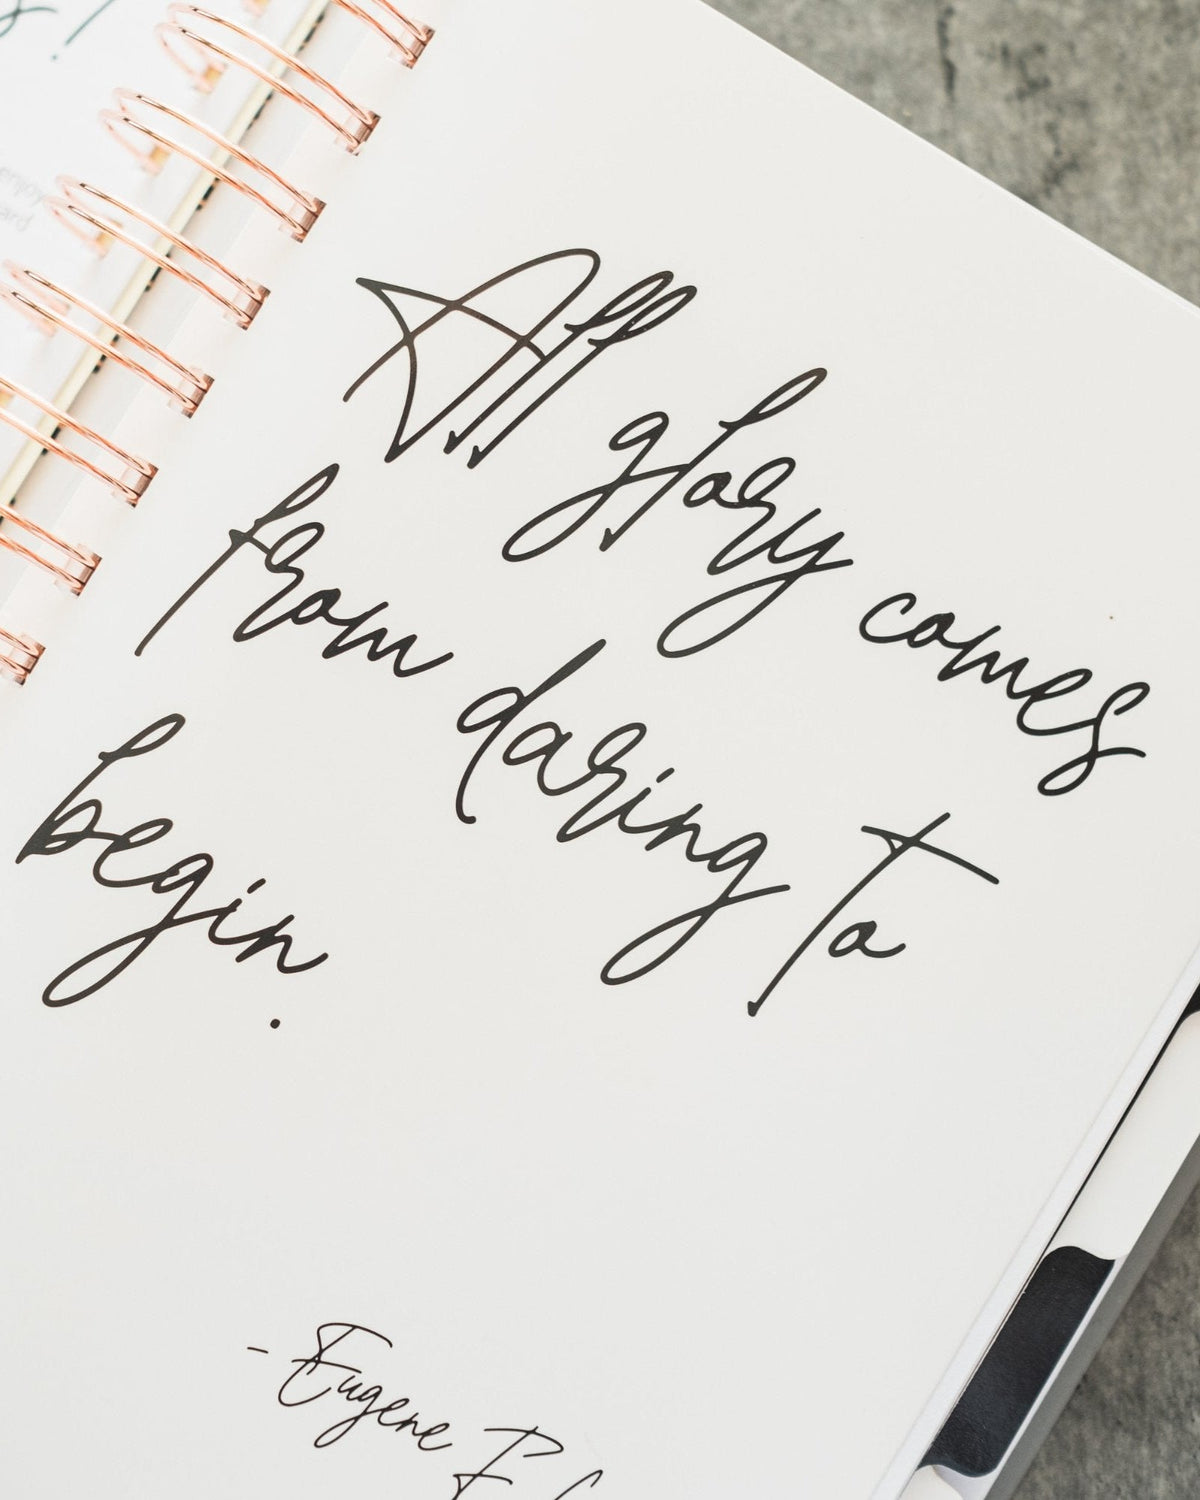 All glory comes
from daring to
begin.
- Eugene F.
enjoy